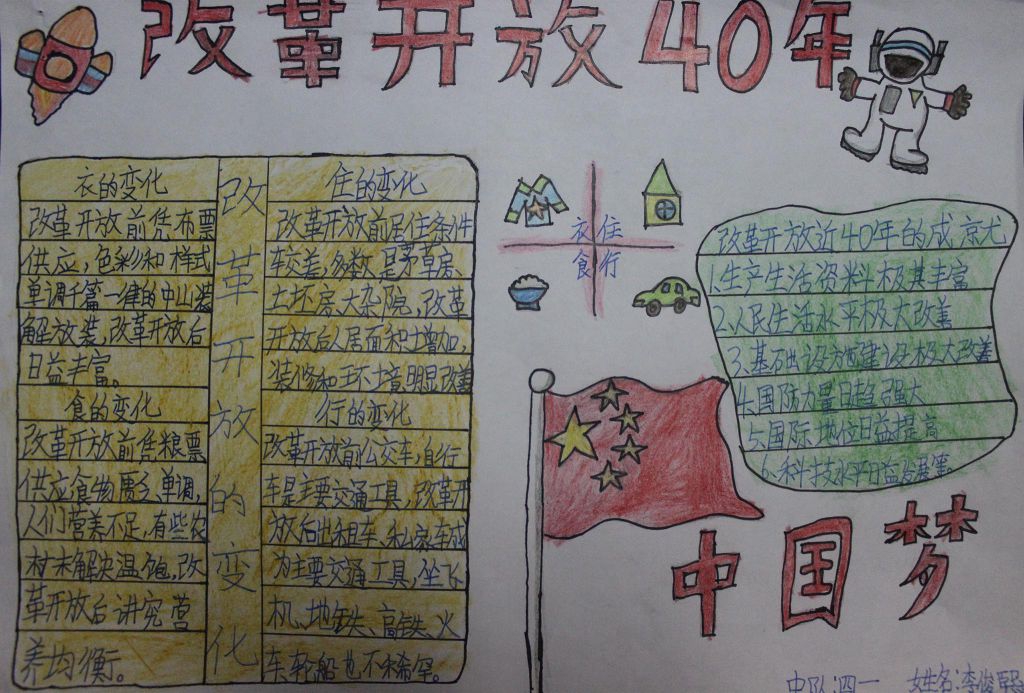 改革开放40年
衣的变化
改革开放前凭布票
供应，色彩和样式
单调千篇一律的中山装
解放装，改革开放后
日益丰富。
食的变化
改革开放前凭粮票
供应食物匮乏单调，
人们营养不足，有些农
村未解决温饱，改
革开放后讲究营
养均衡。
改革开放的变化
住的变化
改革开放前居住条件
较差，多数是茅草房
土坯房、大杂院，改革
开放后人居面积增加，
装修和环境明显改善
行的变化
改革开放前公交车，自行
车是主要交通工具，改革开
放后出租车、私家车成
为主要交通工具，坐飞
机、地铁、高铁、火
车、轮船也不稀罕。
衣住
食行
改革开放近40年的成京尤
1.生产生活资料极其丰富
2.人民生活水平极大改善
3.基础设施建设极大改善
4.国防力量日趋强大
5.国际地位日益提高
6.科技水平日益发展等。
中国梦
中队：四一 姓名：李俊熙